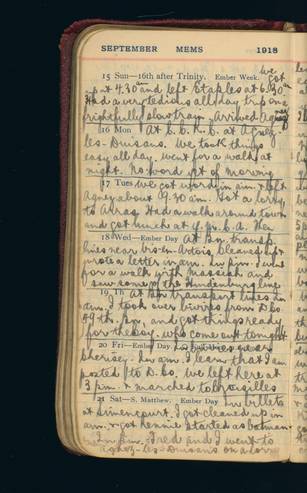 SEPTEMBER MEMS 1918
15 Sun—16th after Trinity. Ember Week. We got
up at 4.30 am and left Etaples at 6.30 am
Had a very tedious all day trip on a
frightfully slow train. Arrived Agnez
16 Mon At C.C.R.C. at Agnez-
les-Duisans. We took things
easy all day. went for a walk at
night. No word yet of moving
17 Tues We got word in am & left
Agnez about 9.30 am. Got a lorry
to Arras. Had a walk around town
and got lunch at
18 Wed—Ember Day at Bn. transp.
lines near Vis-en-Artois. Cleaned up &
wrote a letter in am. In pm I went
for a walk with Massiah and
saw some of the Hindenburg line
19 Th At Bn transport lines in
am. I took over from D Coy
Bn. and got things ready
for the boys who come out tonight
20 Fri—Ember Day In
Cherisy. In am. I learn that I am
posted to D. Co. We left here at
3 pm. & marched to
21 Sat—S. Matthew. Ember Day In billets
at Simencourt. I got cleaned up in
am. & got Rennie started as batman.
In pm. Fred and I went to
Agnez-les-Duisans on a lorry